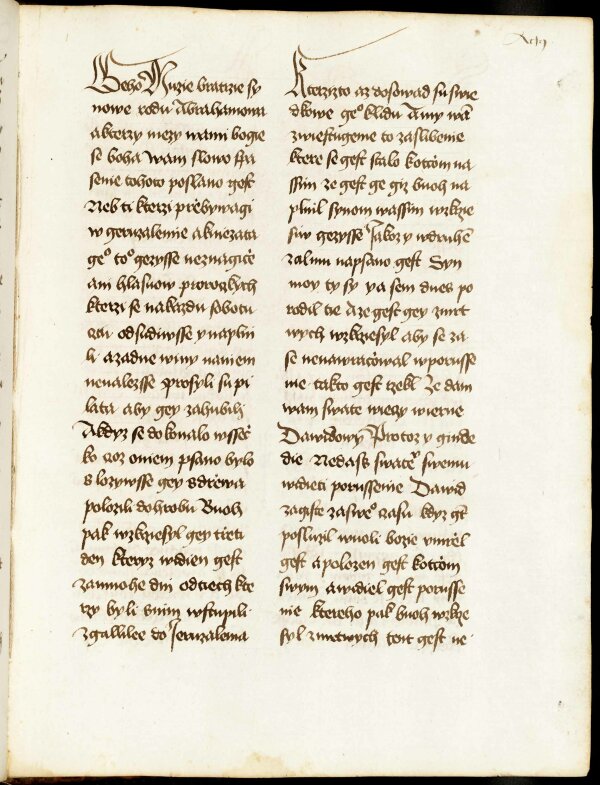 Geho Muzie bratrzie sy
nowe rodu Abrahamowa
akterzy mezy wami bogie
se boha Wam slowo spa
senie tohoto poslano gest
Neb ti kterzi przebywagi
w geruzalemie akniezata
ge° to° gezysse neznagicze
ani hlasuow prorocskych
kterzi se nakazdu sobotu
cztu odsudiwsse y naplni
li a zadne winy naniem
nenalezsse prosyli su pi
lata aby gey zahubil
Akdyz se dokonalo wssec
ko coz oniem psano bylo
slozywsse gey sdrzewa
polozili dohrobu Buoh
pak wzkrziesyl gey trzeti
den kteryz widien gest
zamnohe dni odtiech kte
rzy byli snim wstupili
zgalilee do Jeruzalema
Kterzizto az dosawad su swie
dkowe ge° klidu Amy wam
zwiestugeme to zaslibenie
ktere se gest stalo kotcom na
ssim ze gest ge giz buoh na
plnil synom wassim wzkrzie
siw gezysse Jakoz y wdruhem
zalmu napsano gest Syn
moy ty sy ya sem dnes po
rodil tie A ze gest gey zmrt
wych wzkrziesyl aby se za
se nenawraczowal wporusse
nie takto gest rzekl Ze dam
wam swate wieczy wierne
Dawidowy Protoz y ginde
die Nedass swate° swemu
widieti porussenie Dawid
zagiste zaswe° czasu kdyz gt
posluzil wuoli bozie vmrzel
gest a polozen gest kotcom
swym a widiel gest porusse
nie ktereho pak buoh wzkrze
syl zmrtwych tent gest ne